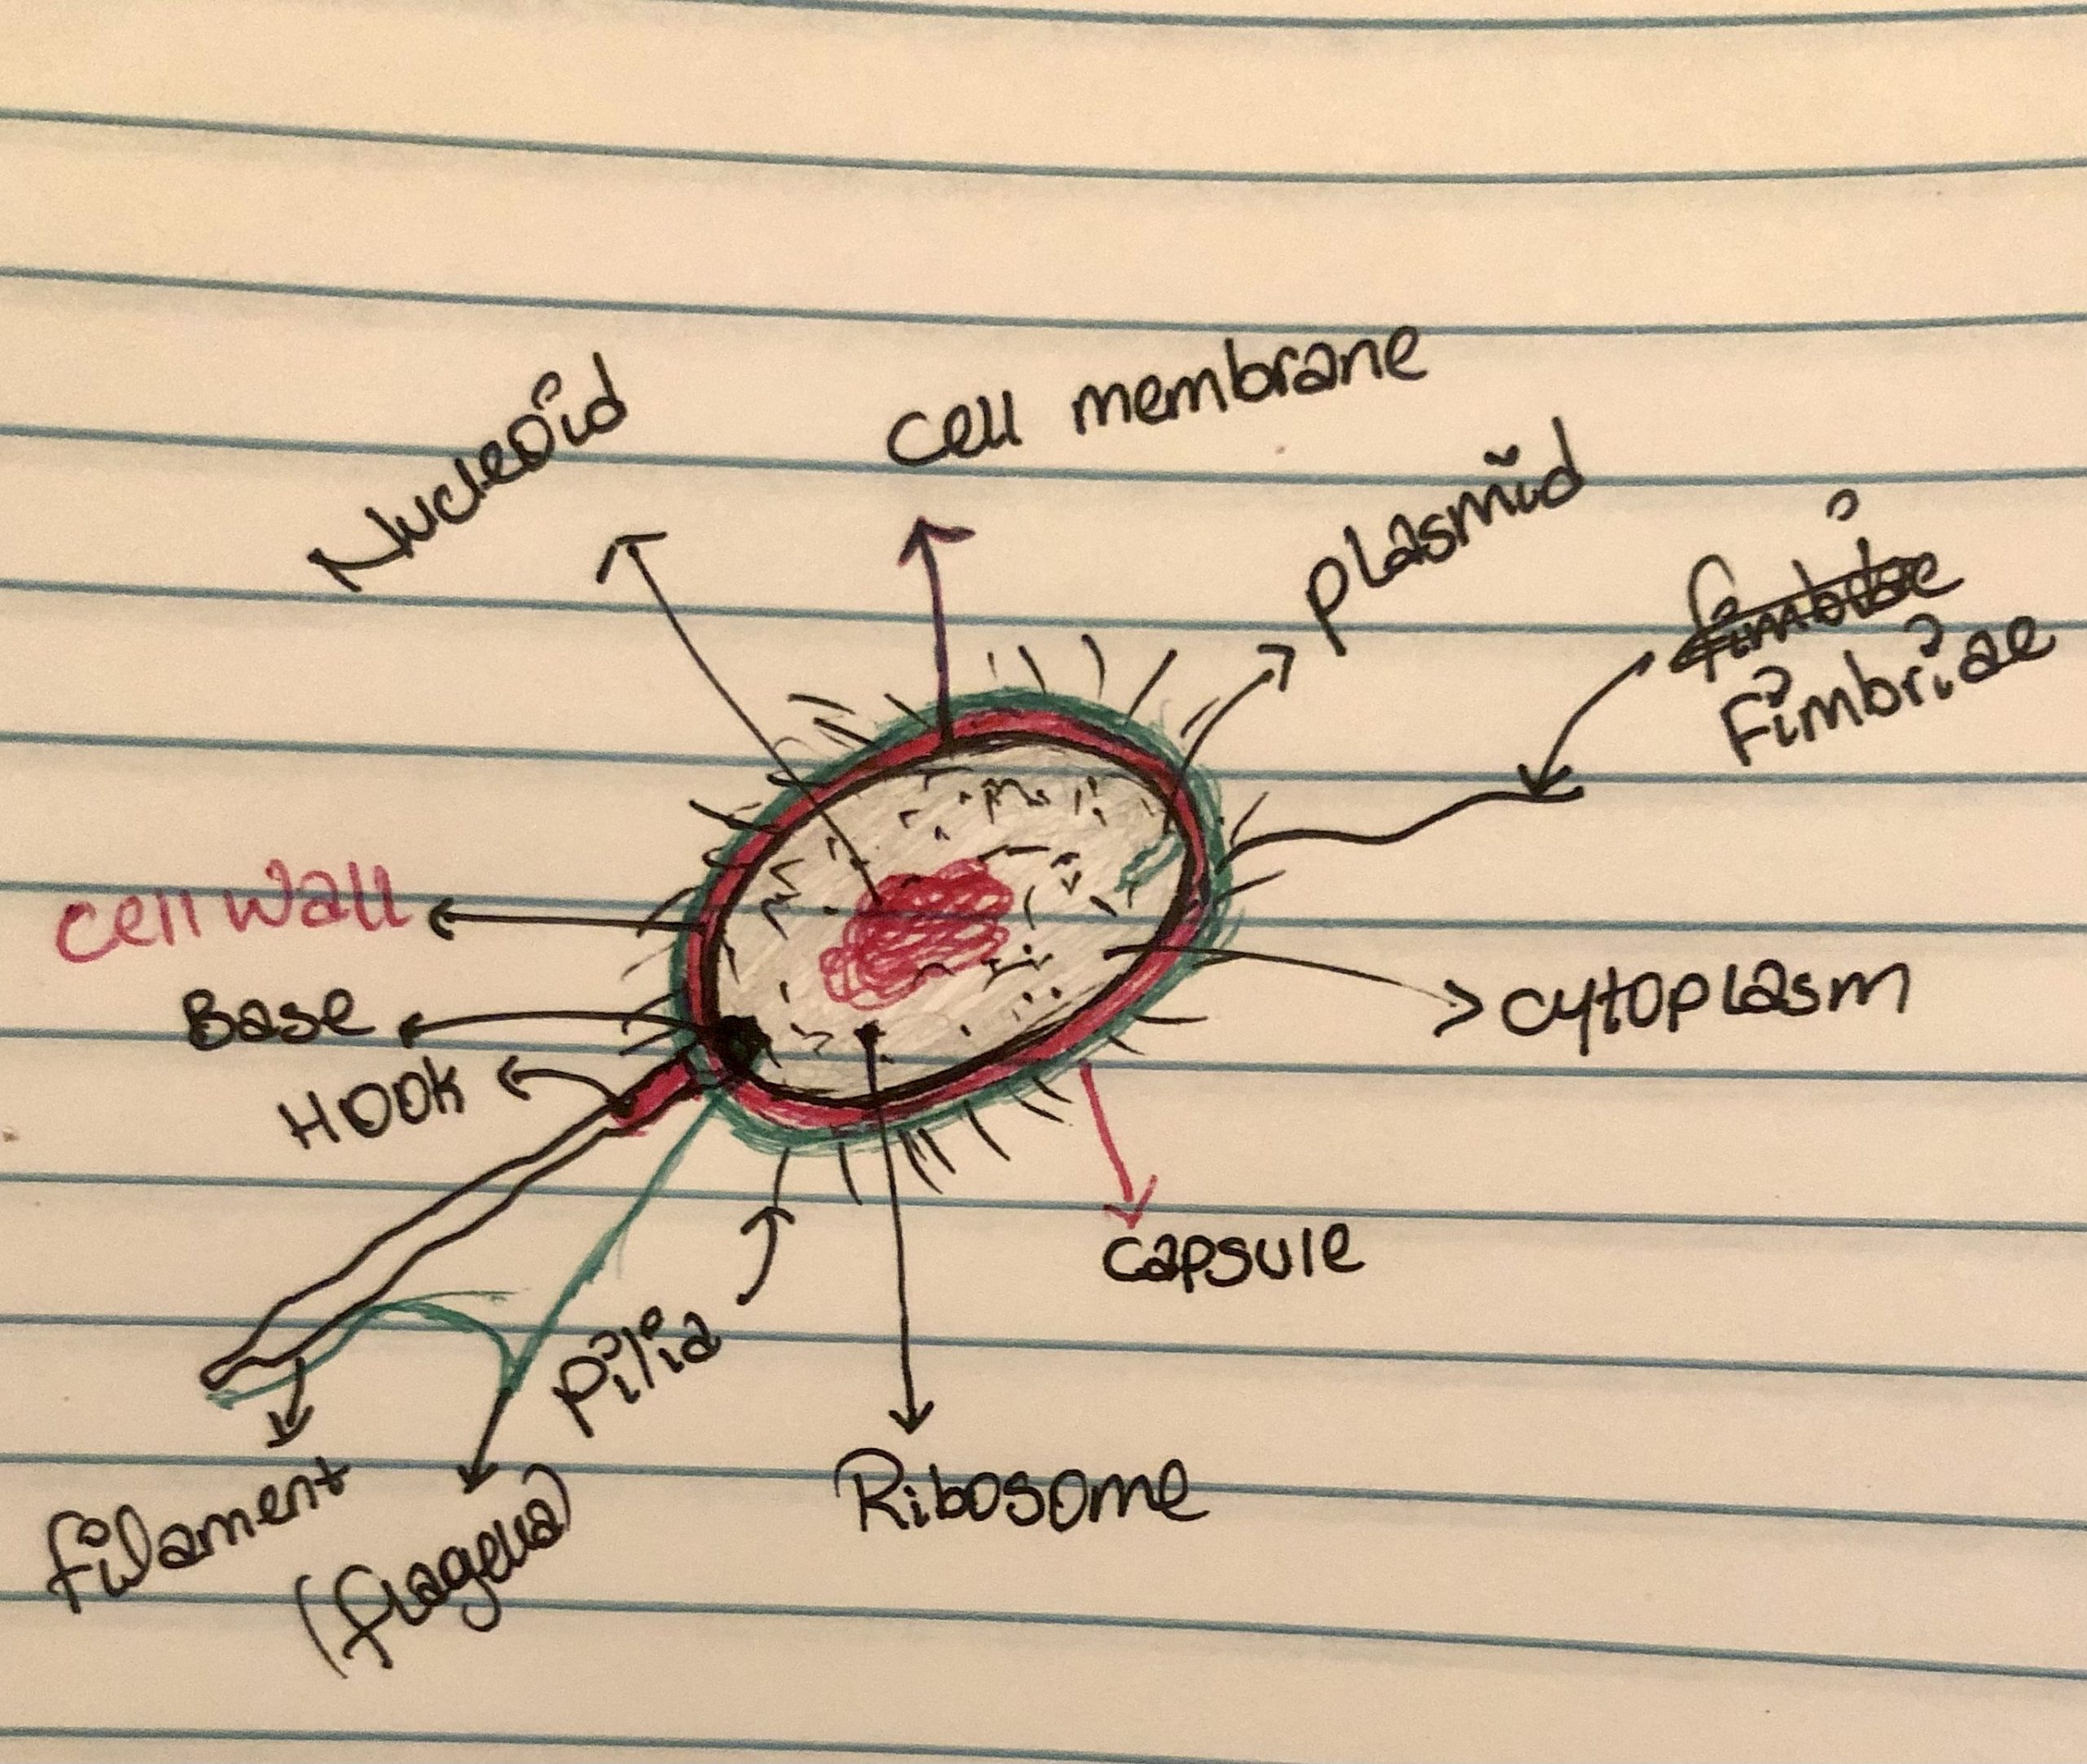 Nucleoid
cell membrane
plasmid
fimbriae
cell wall
Base
Hook
cytoplasm
capsule
pilia
Ribosome
filament
(flagella)